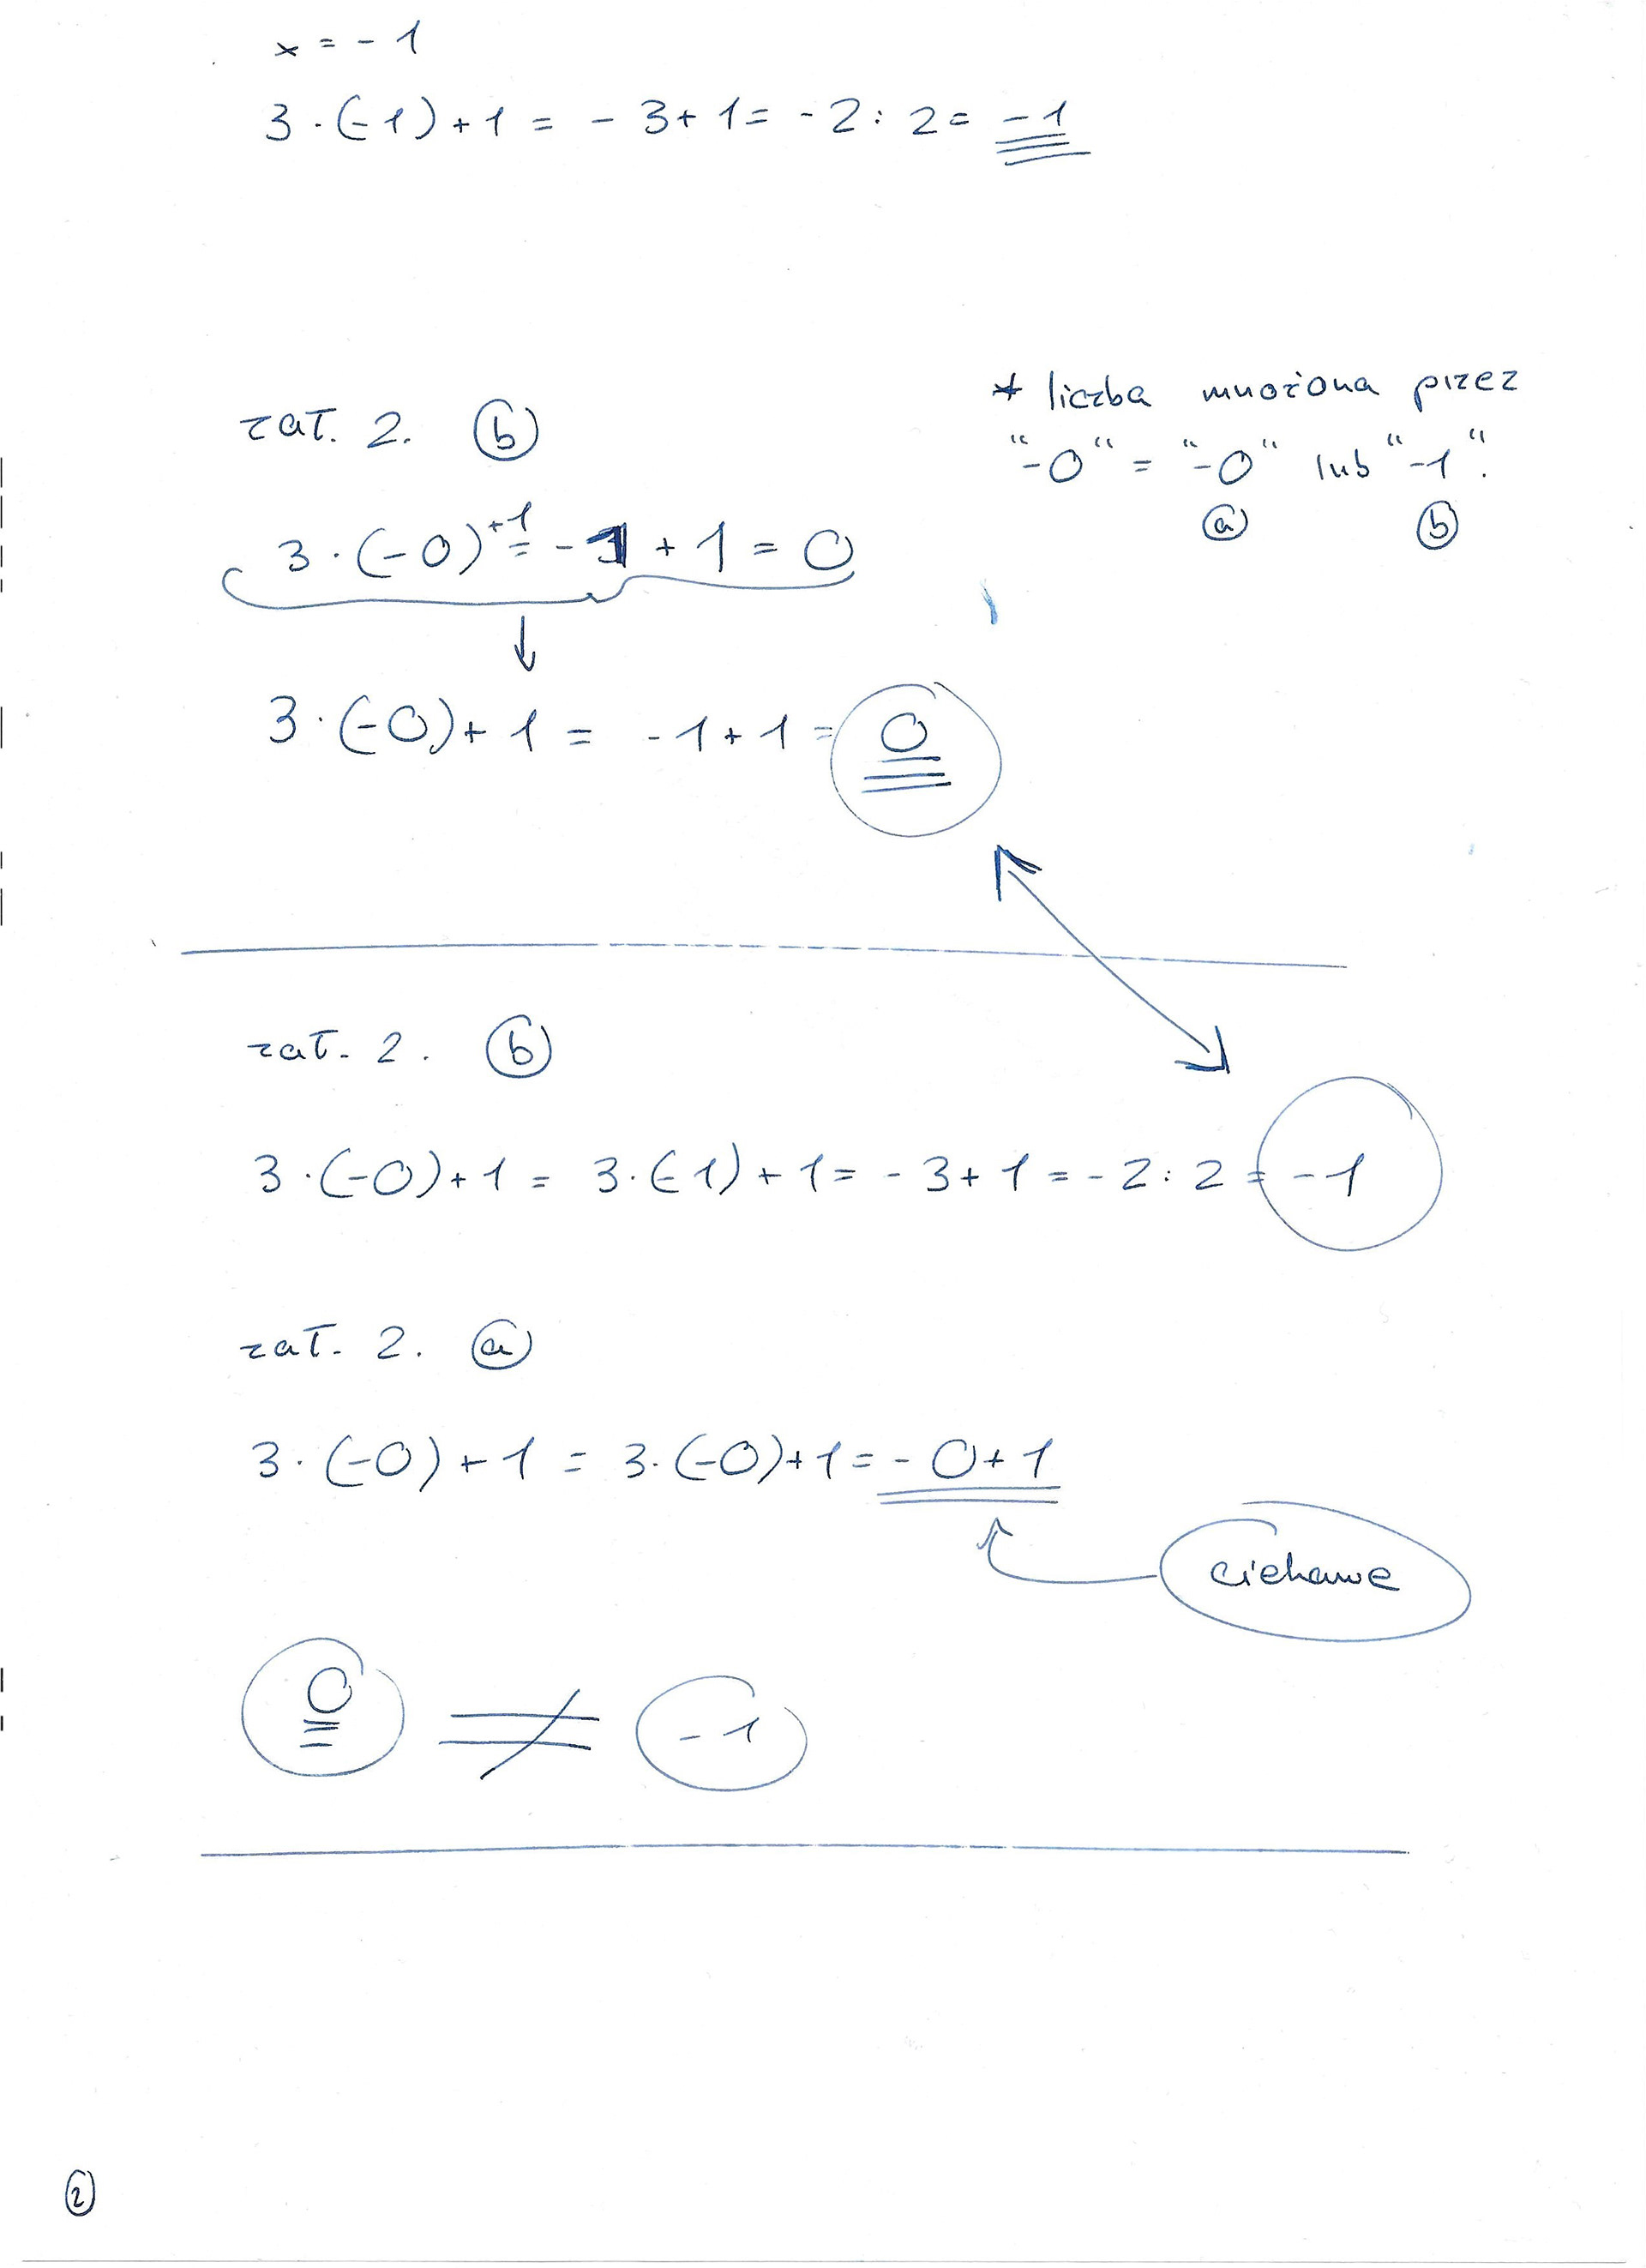 x = - 1
3 · (-1) + 1 = - 3 + 1 = - 2 : 2 = -1
zał. 2. (b)
* liczba mnożona przez
"-0" = "-0" lub "-1".
(a) (b)
3 · (-0) +1 = -1 + 1 = 0
3 · (-0) + 1 = -1 + 1 = 0
zał. 2. (b)
3 · (-0) + 1 = 3 · (-1) + 1 = - 3 + 1 = - 2 : 2 = -1
zał. 2. (a)
3 · (-0) + 1 = 3 · (-0) + 1 = - 0 + 1
ciekawe
0 ≠ -1
2